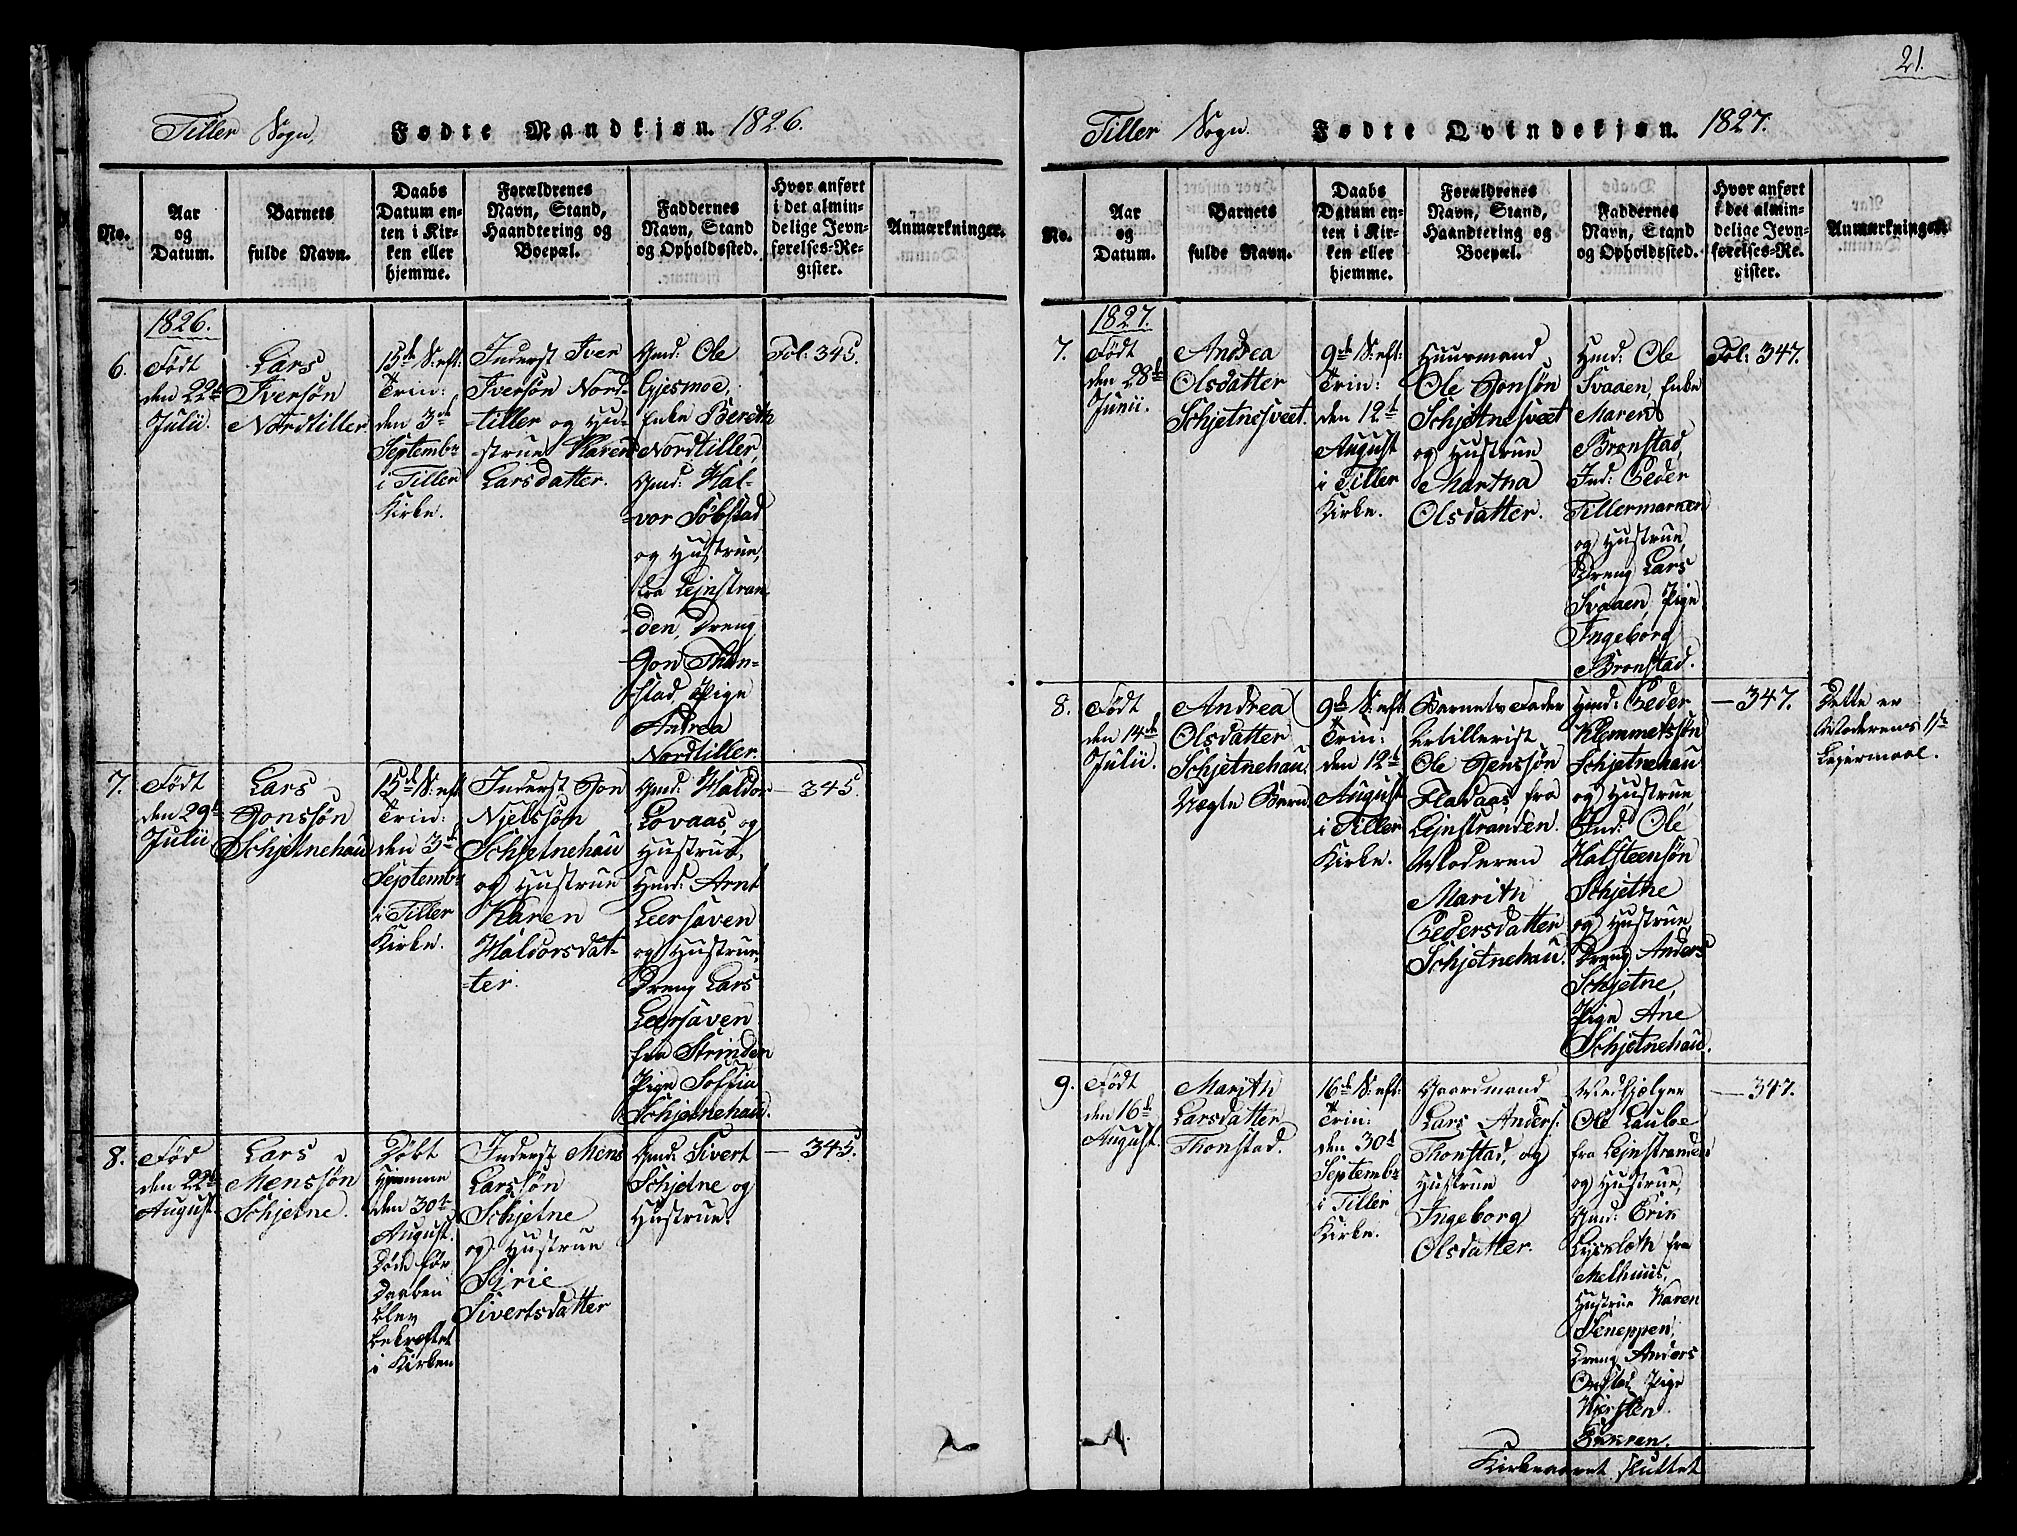 Tiller Sogn. Fødte Mandkjøn. 1826.
No.
Aar
og
Datum.
Barnets
fulde Navn.
Daabs
Datum en-
ten i Kir-
ken eller
hjemme.
Forældrenes
Navn, Stand,
Haandtering og
Boepæl.
Faddernes
Navn, Stand
og Opholdssted.
Hvor anført
i det almin-
delige Jevn-
førelses-Re-
gister.
Anmærkninger.
1826.
6.
Født
den 22de
Julii.
Lars
Iversøn
Nordtiller
15de S: eft:
Trin:
den 3de
Septembr
i Tiller
Kirke.
Inderst Iver
Iversøn Nord-
tiller og Hu-
strue Karen
Larsdatter.
Gmd: Ole
Gjesmoe,
Enke Bereth
Nordtiller,
Gmd: Hal-
vor Søbstad
og Hustrue,
fra Lejnstran-
den, Dreng
Jon Thon-
stad, Pige
Andrea
Nordtiller.
Fol: 345.
7.
Født
den 29de
Julii
Lars
Jonssøn
Schjetnehau
15de S: eft
Trin:
den 3de
Septembr
i Tiller
Kirke.
Inderst Jon
Njelssøn
Schjetnehau
og Hustrue
Karen
Haldorsdat-
ter.
Gmd: Haldor
Lovaas, og
Hustrue,
Hmd: Arnt
Leersaven
og Hustrue,
Dreng Lars
Leersaven
fra Strinden
Pige Soffia
Schjetnehau.
— 345.
8.
Fød
den 22de
August.
Lars
Menssøn
Schjetne.
Døbt
Hjemme
den 30te
August.
Døde før
Daaben
blev
bekræftet
i Kirken
Inderst Mens
Larssøn
Schjetne
og Hustrue
Sirie
Sivertsdatter
Gmd: Sivert
Schjetne og
Hustrue.
— 345.
21.
Tiller Sogn. Fødte Qvindekjøn. 1827.
No.
Aar
og
Datum.
Barnets
fulde Navn.
Daabs
Datum en-
ten i Kir-
ken eller
hjemme.
Forældrenes
Navn, Stand,
Haandtering og
Boepæl.
Faddernes
Navn, Stand
og Opholdssted.
Hvor anført
i det almin-
delige Jevn-
førelses-Re-
gister.
Anmærkninger.
1827.
7.
Født
den 28de
Junii.
Andrea
Olsdatter
Schjetnesveet.
9de S: eft:
Trin:
den 12te
August
i Tiller
Kirke.
Huusmand
Ole Jonsøn
Schjetnesveet
og Hustrue
Martha
Olsdatter.
Hmd: Ole
Svaaen, Enke
Maren
Bronstad,
Ind: Peder
Tillermarken
og Hustrue,
Dreng Lars
Svaaen, Pige
Ingeborg
Bronstad.
Fol: 347.
8.
Født
den 14de
Julii.
Andrea
Olsdatter
Schjetnehau.
Uægte Barn
9de S: eft
Trin:
den 12te
August
i Tiller
Kirke.
Barnets Fader
Artillerist
Ole Jenssøn
Fladaas fra
Lejnstranden.
Moderen
Marith
Pedersdatter
Schjetnehau.
Hmd: Peder
Klemmetssøn
Schjetnehau
og Hustrue
Ind: Ole
Halsteensøn
Schjetne
og Hustrue
Dreng Anders
Schjetne,
Pige Ane
Schjetnehau.
— 347.
Dette er
Moderens 1ste
Lejermaal.
9.
Født
den 16de
August.
Marith
Larsdatter
Thonstad.
16de S: eft:
Trin:
den 30te
Septembr
i Tiller
Kirke.
Gaardmand
Lars Anders:
Thonstad, og
Hustrue
Ingeborg
Olsdatter.
Medhjelper
Ole Lauboe
fra Lejnstranden
og Hustrue,
Gmd: Erik
fra
Melhuus,
Hustrue Karen
Sneppen,
Dreng Anders
Pige
Kjersten
Kirkeaaret sluttet